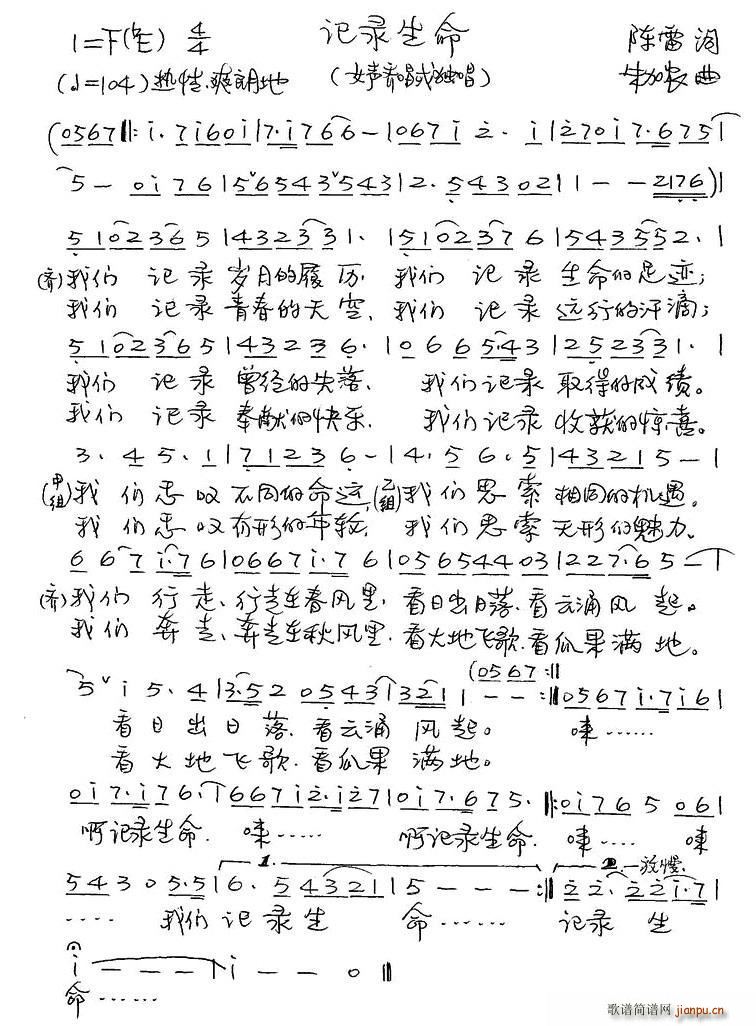 1=F(♭E) 4/4 记录生命 陈雷词
(♩=104)热情、爽朗地 (女声齐唱或独唱) 朱加农曲
(0567‖:i·7i60i|7·i766-|067i2·i|27 0i7·675|
5-0i76|5ˇ6543ˇ543|2·543021|1--2176)|
5102365|432331·|5102376|5435 52·|
(齐)我们 记录岁月的履历, 我们 记录 生命的足迹;
我们 记录青春的天空, 我们 记录 远行的汗滴;
5102365|432236·|0665·43|252331·|
我们 记录 曾经的失落, 我们记录 取得的成绩。
我们 记录 奉献的快乐, 我们记录 收获的惊喜。
3·45·1|71236-|4·56·5|432 15-|
(甲组)我们感叹不同的命运,(乙组)我们思索相同的机遇。
我们感叹有形的年轮, 我们思索无形的魅力。
667i·76|0667i·76|05654403|227·65-|
(齐)我们 行走、行走在春风里, 看日出日落、看云涌风 起。
我们 奔走、奔走在秋风里, 看大地飞歌、看瓜果满 地。
(0567:‖
5ˇi5·4|3·520543|3211--:‖0567i·7i6|
看日出日落、看云涌 风起。 唻……
看大地飞歌、看瓜果 满地。
0i7·i76·|667i2·i27|0i7·675·‖:0i76506|
啊记录生命, 唻…… 啊记录生命, 唻…… 唻
1. 2.—放慢
54305·5|6·54321|5---:‖22·22i·7|
…… 我们 记录生 命…… 记录 生
i---|i--0‖
命……
歌谱简谱网
jianpu.cn